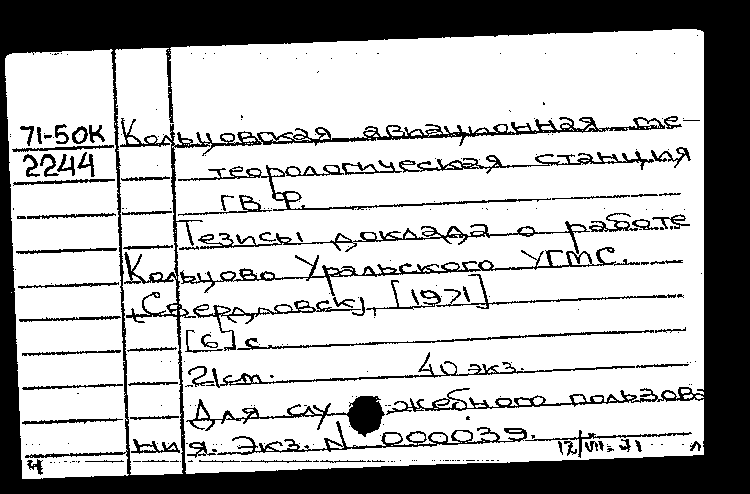 71-50К Кольцовская авиационная ме-
2244 теорологическая станция
ГВФ.
Тезисы доклада о работе
Кольцово Уральского УГМС.
[Свердловск], [1971]
[6] с.
21 cm. 40 экз.
Для служебного пользова
ния. Экз. N 000039.
12/VII-71